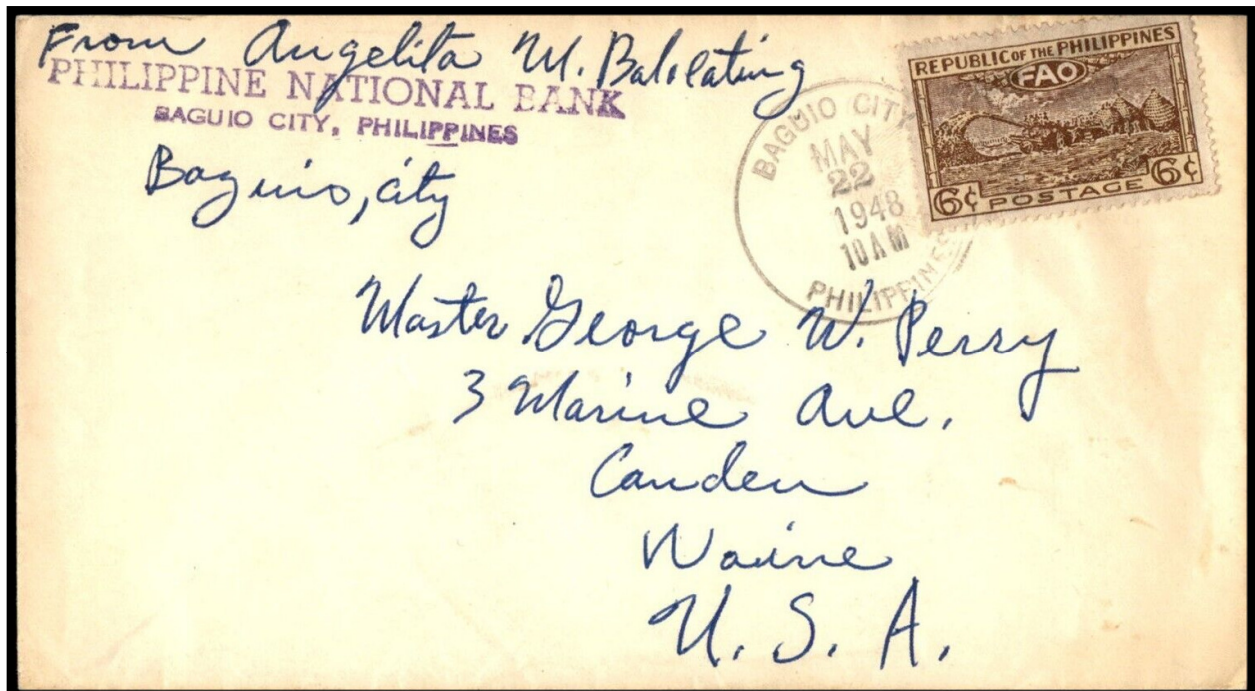 From Angelita M.
PHILIPPINE NATIONAL BANK
BAGUIO CITY, PHILIPPINES
Baguio, city
BAGUIO CITY
MAY
22
1948
10 AM
PHILIPPINES
REPUBLIC OF THE PHILIPPINES
FAO
6¢ POSTAGE 6¢
Master George W. Perry
3 Marine Ave.
Canden
Waine
U. S. A.